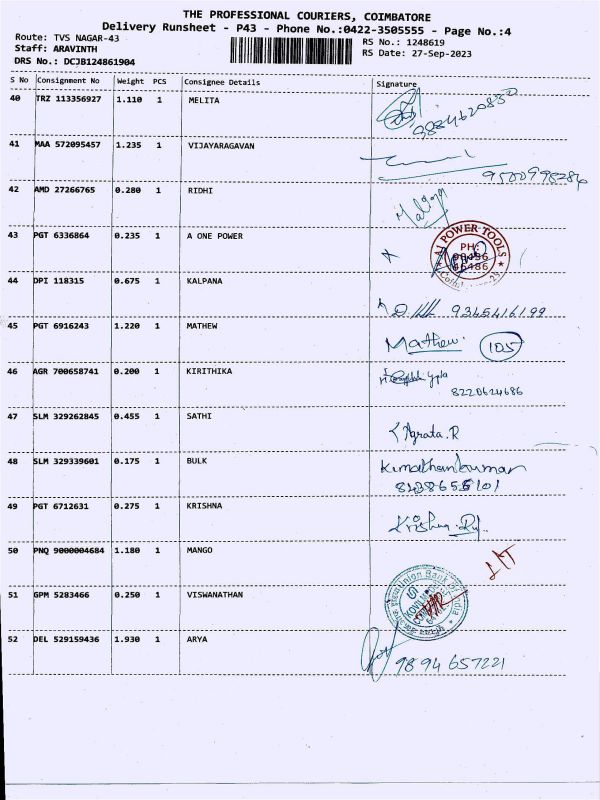 THE PROFESSIONAL COURIERS, COIMBATORE
Delivery Runsheet - P43 - Phone No.:0422-3505555 - Page No.:4
Route: TVS NAGAR-43
Staff: ARAVINTH
DRS No.: DCJB124861904
RS No.: 1248619
RS Date: 27-Sep-2023
S No Consignment No Weight PCS Consignee Details Signature
40 TRZ 113356927 1.110 1 MELITA
9884620830
41 MAA 572095457 1.235 1 VIJAYARAGAVAN
9500998286
42 AMD 27266765 0.280 1 RIDHI
43 PGT 6336864 0.235 1 A ONE POWER
A1 POWER TOOLS
PH:
44 DPI 118315 0.675 1 KALPANA
9345416199
45 PGT 6916243 1.220 1 MATHEW
Mathew. 105
46 AGR 700658741 0.200 1 KIRITHIKA
8220624686
47 SLM 329262845 0.455 1 SATHI
Agrata.R
48 SLM 329339601 0.175 1 BULK
49 PGT 6712631 0.275 1 KRISHNA
Krishna
50 PNQ 9000004684 1.180 1 MANGO
51 GPM 5283466 0.250 1 VISWANATHAN
Union Bank of India
52 DEL 529159436 1.930 1 ARYA
9894657221